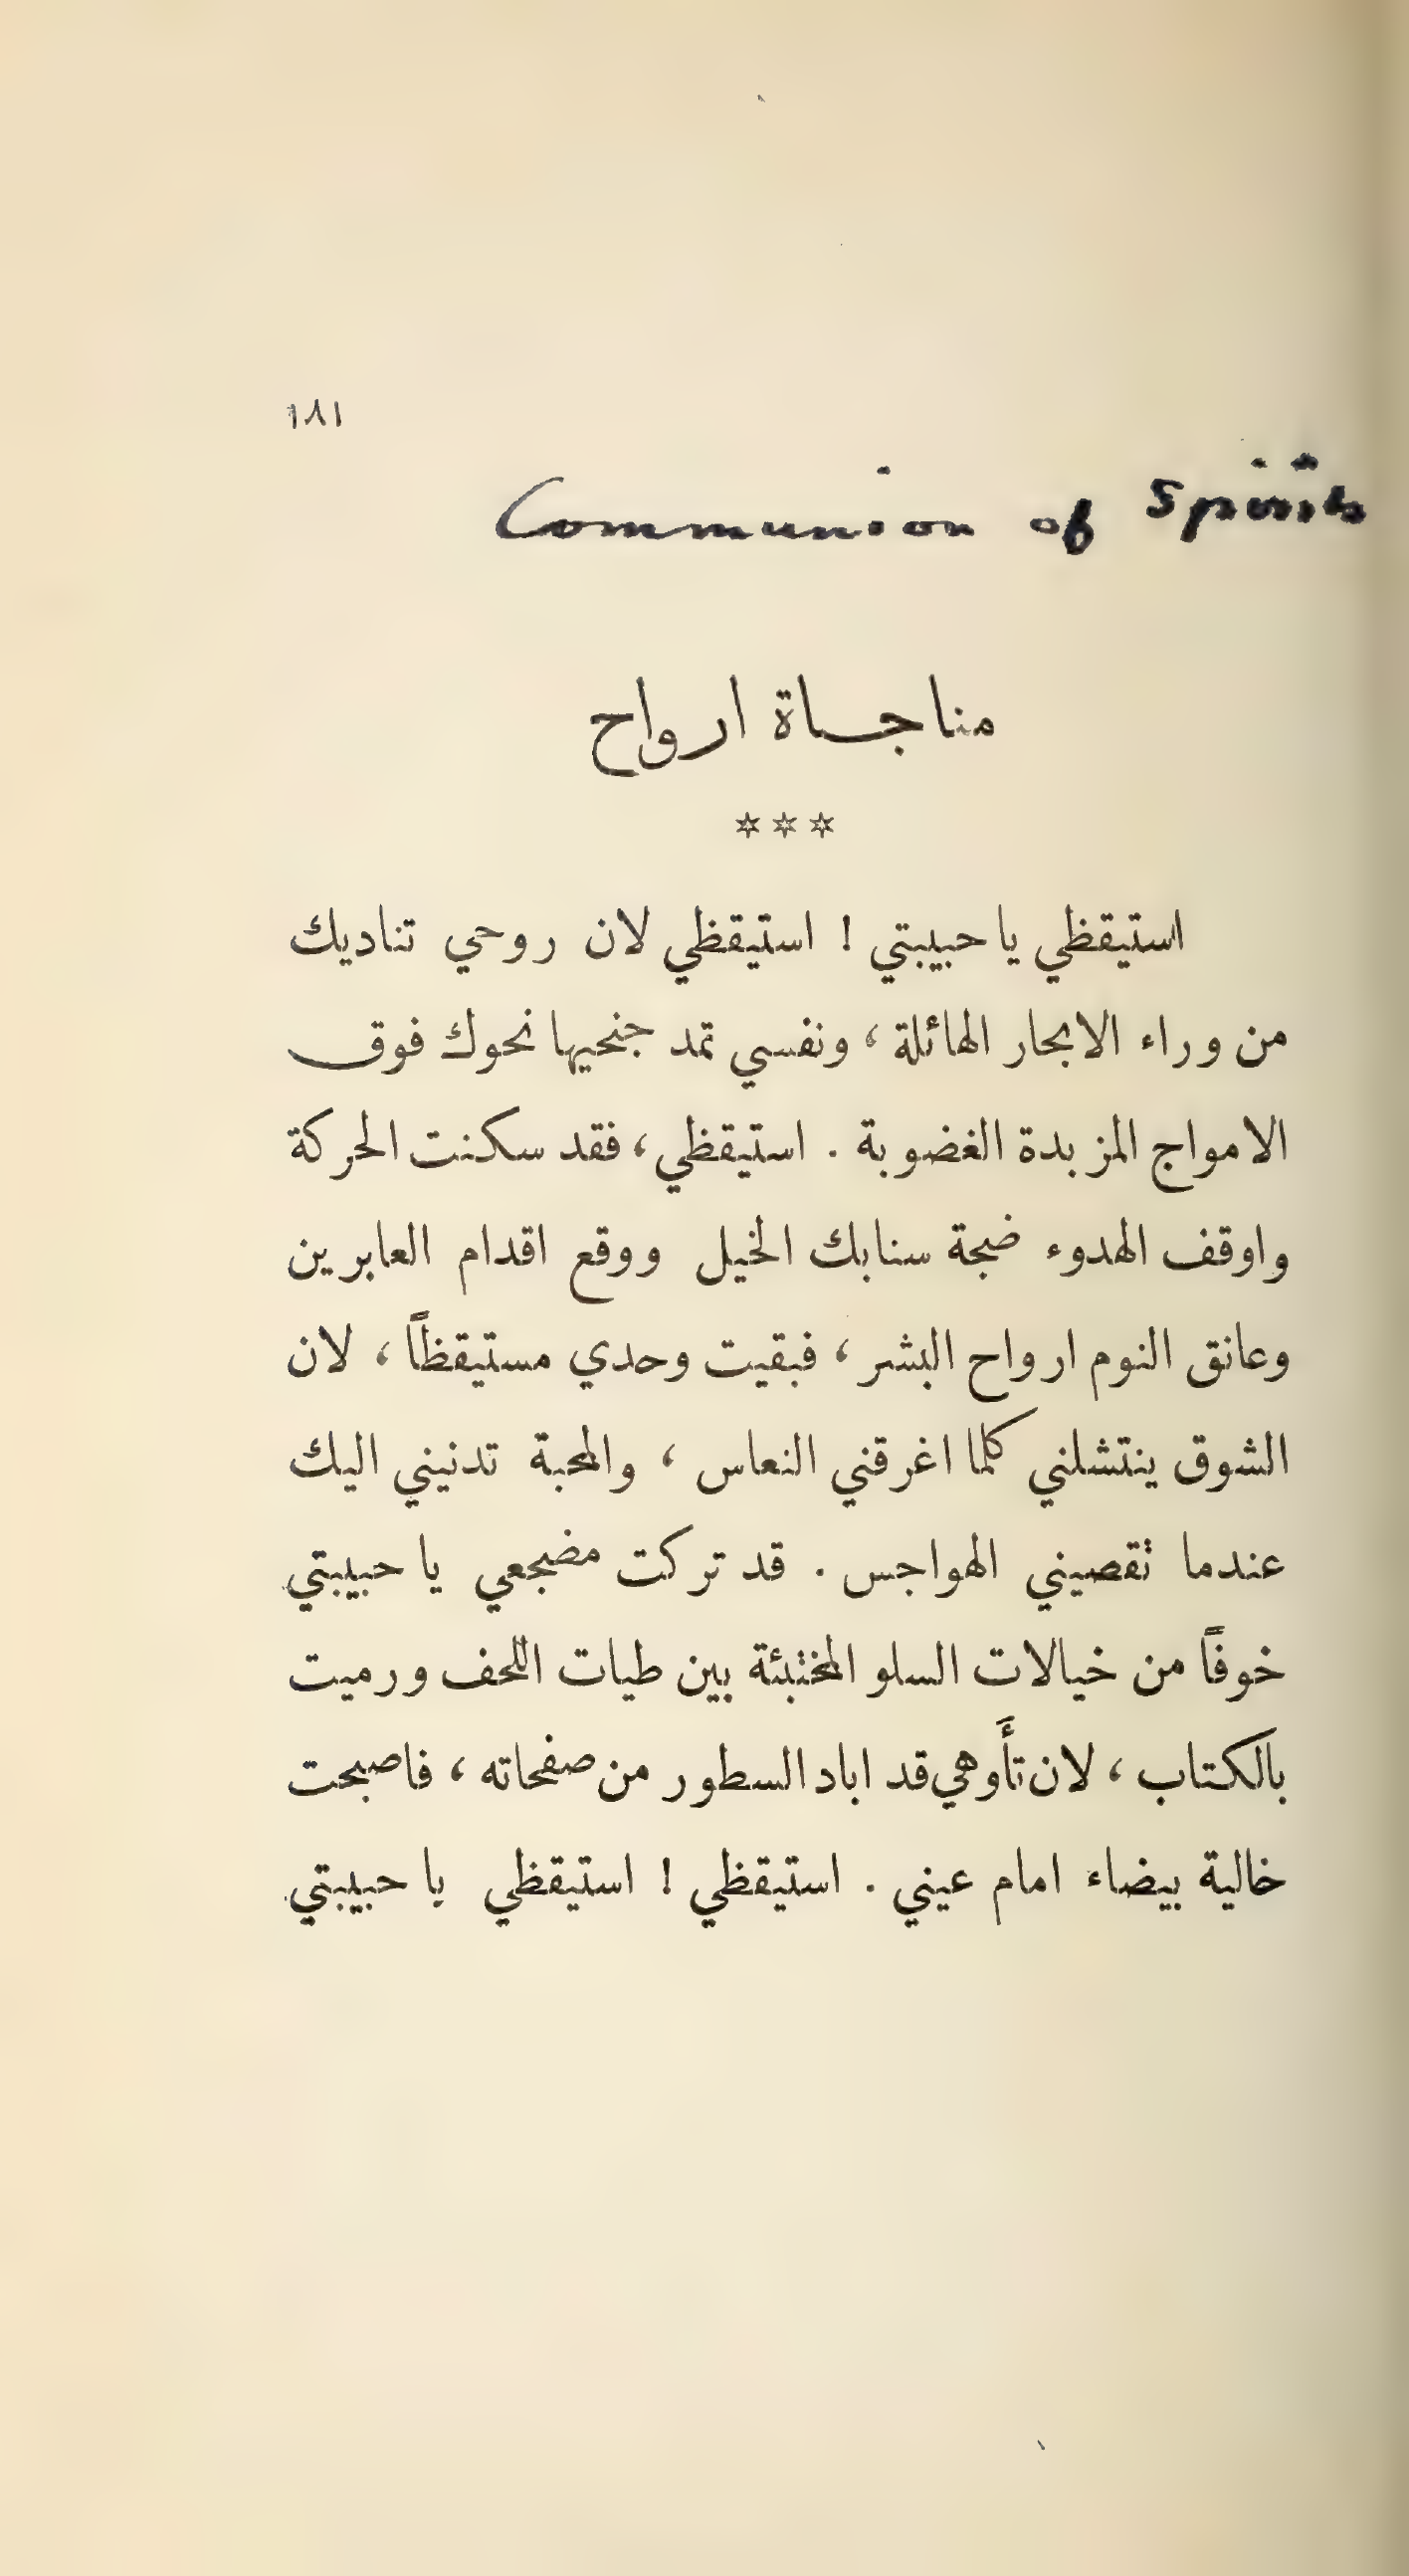 ١٨١
Communion of Spirits
مناجاة ارواح
* * *
استيقظي يا حبيبتي ! استيقظي لان روحي تناديك
من وراء الابحار الهائلة ، ونفسي تمد جنحيها نحوك فوق
الامواج المزبدة الغضوبة . استيقظي ، فقد سكنت الحركة
واوقف الهدوء ضجة سنابك الخيل ووقع اقدام العابرين
وعانق النوم ارواح البشر ، فبقيت وحدي مستيقظاً ، لان
الشوق ينتشلني كلما اغرقني النعاس ، والمحبة تدنيني اليك
عندما تقصيني الهواجس . قد تركت مضجعي يا حبيبتي
خوفاً من خيالات السلو المختبئة بين طيات اللحف ورميت
بالكتاب ، لان تأَوهي قد اباد السطور من صفحاته ، فاصبحت
خالية بيضاء امام عيني . استيقظي ! استيقظي يا حبيبتي